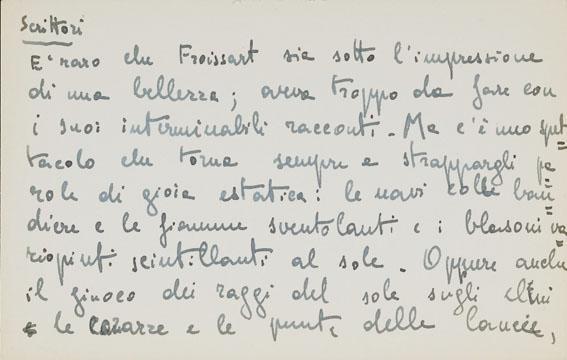 Scrittori
E' raro che Froissart sia sotto l'impressione
di una bellezza; aveva troppo da fare con
i suoi interminabili racconti. Ma c'è uno spet=
tacolo che torna sempre a strappargli pa=
role di gioia estatica: le navi colle ban=
diere e le fiamme sventolanti e i blasoni va=
riopinti scintillanti al sole. Oppure anche
il giuoco dei raggi del sole sugli elmi
e le corazze e le punte delle lancie,